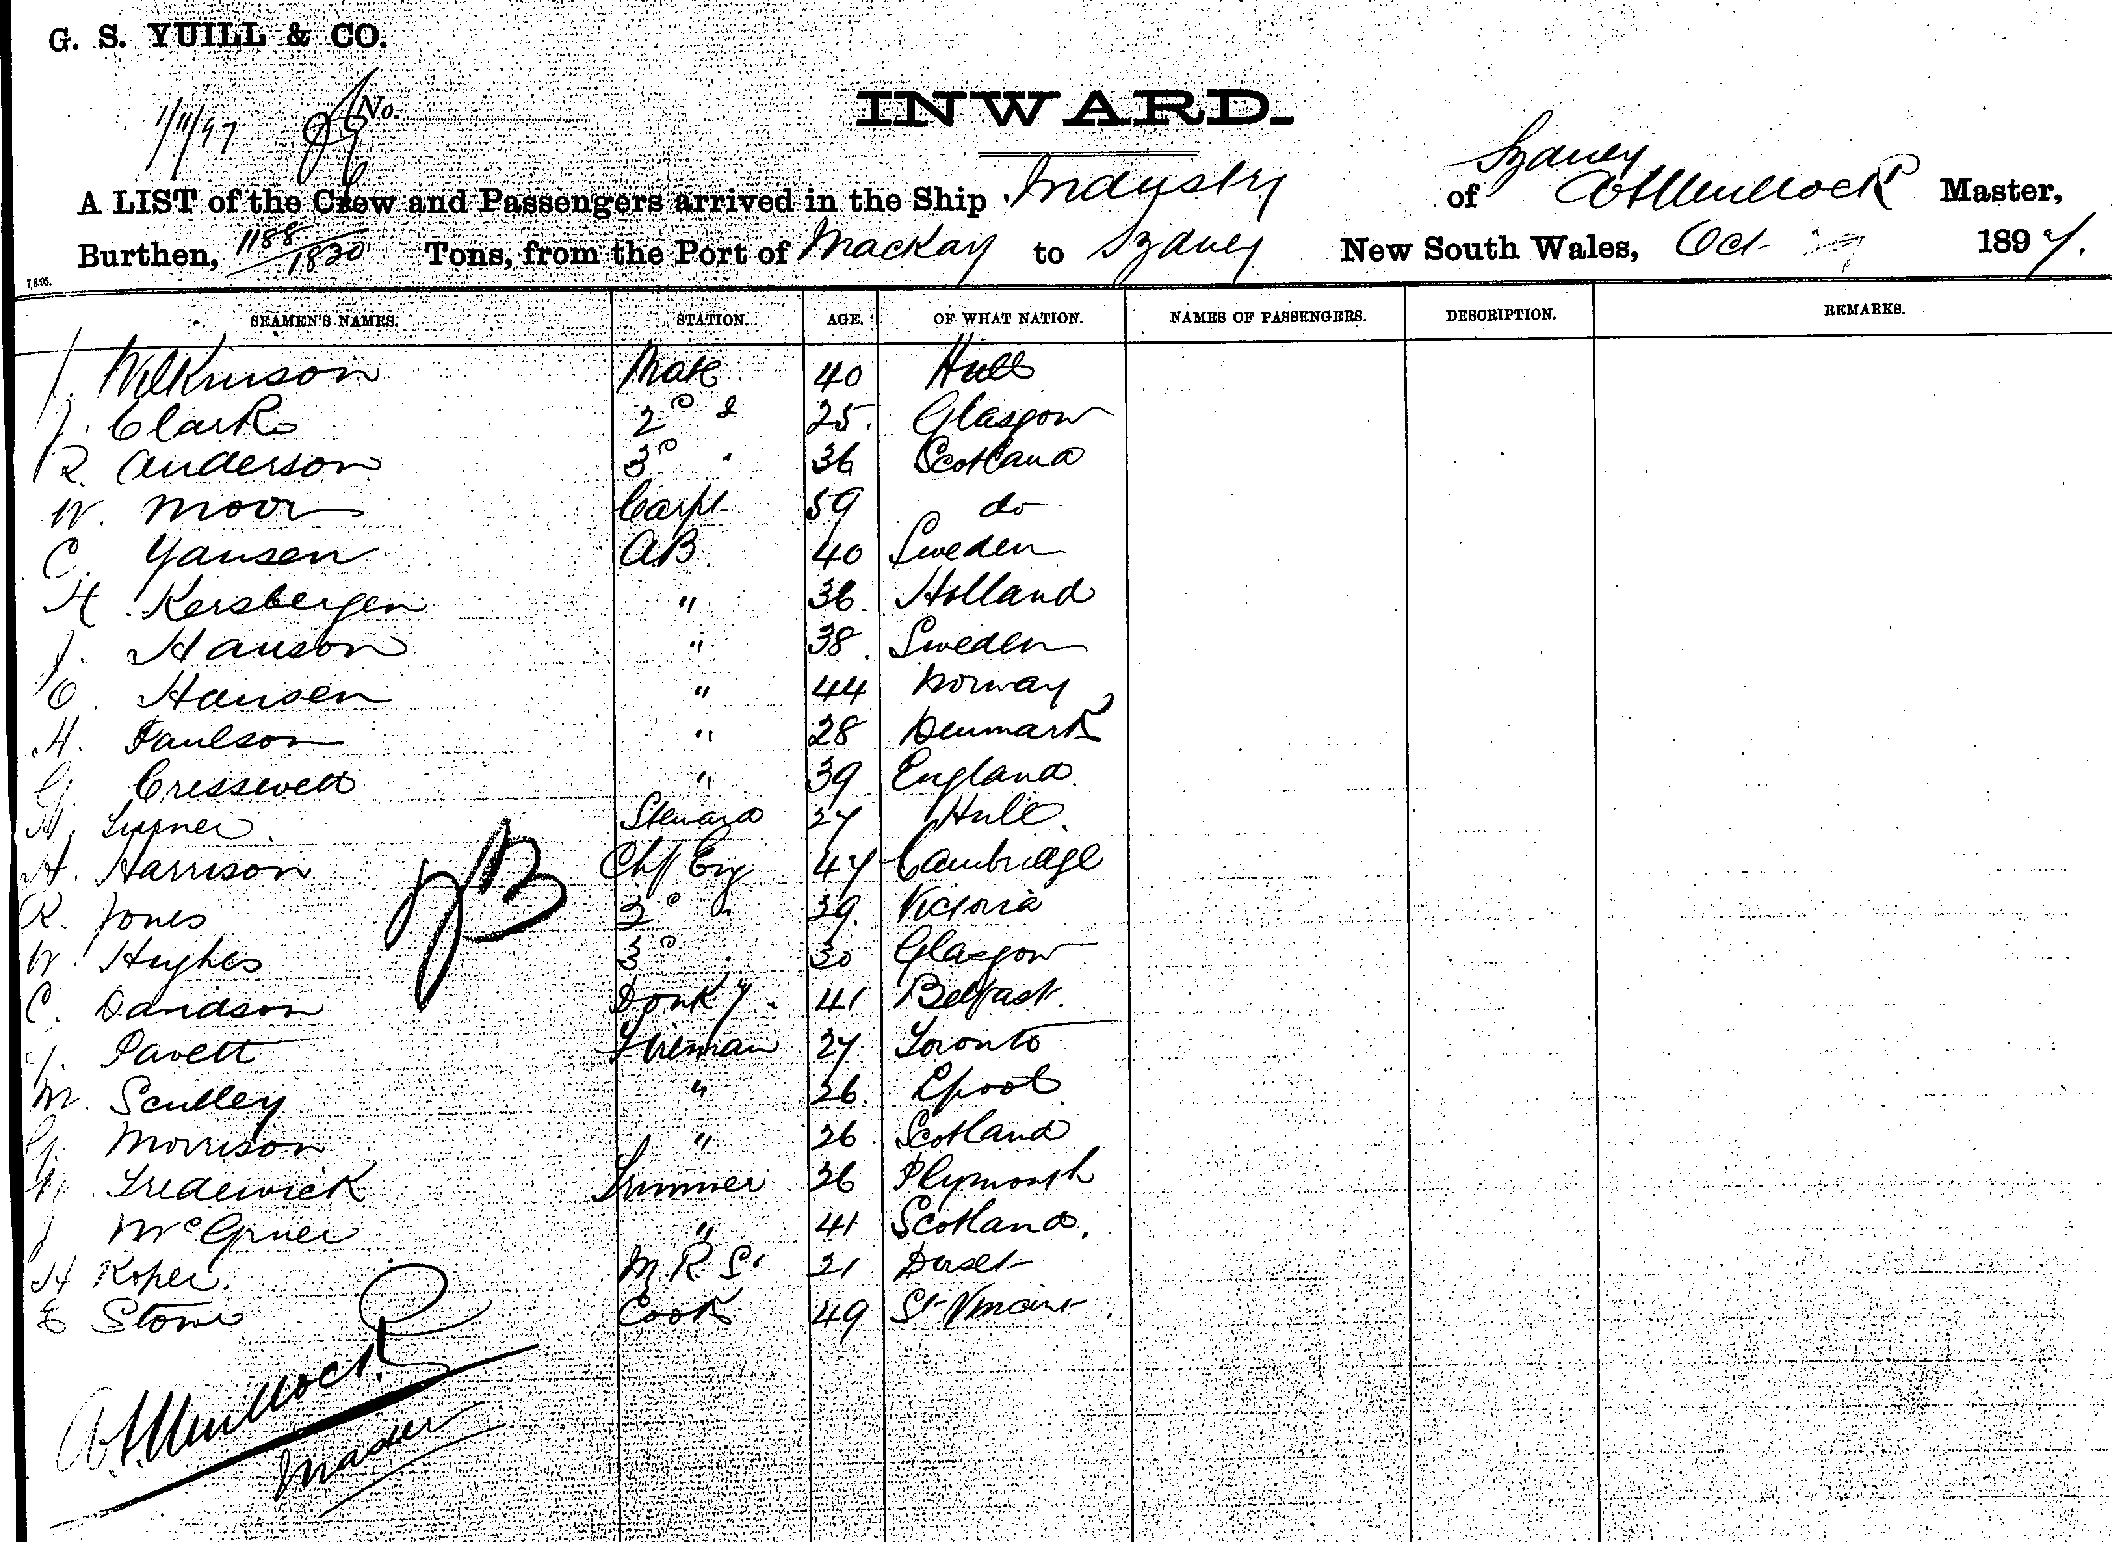 G. S. YUILL & CO.
1/11/97 No.
INWARD.
Sydney
A LIST of the Crew and Passengers arrived in the Ship Industry of Master,
Burthen, 1188/1820 Tons, from the Port of Mackay to Sydney New South Wales, Oct 1897.
7.8.95.
SEAMEN'S NAMES. STATION. AGE. OF WHAT NATION. NAMES OF PASSENGERS. DESCRIPTION. REMARKS.
J. Wilkinson Mate 40 Hull
J. Clark 2d " 25. Glasgow
R. Anderson 3d " 36 Scotland
W. Moor Carpt 59 do
C. Yansen AB 40 Sweden
H. Kersbergen " 36 Holland
J. Hanson " 38 Sweden
C. Hansen " 44 Norway
H. Paulson " 28 Denmark
G. Cresswell " 39 England
Steward 27 Hull.
A. Harrison Chf Eng 47 Cambridge
R. Jones 2d " 39. Victoria
W. Hughes 3d " 30 Glasgow
C. Davidson Donky. 41 Belfast.
J. Pavett Fireman 27 Toronto
M. Sculley " 26. Lpool
G. Morrison " 26 Scotland
W. Frederick Trimmer 26 Plymouth
J " 41 Scotland.
H Roper. M.R.S. 21 Dorset
E Stowe Cook 49 St Vincent
JB
Master